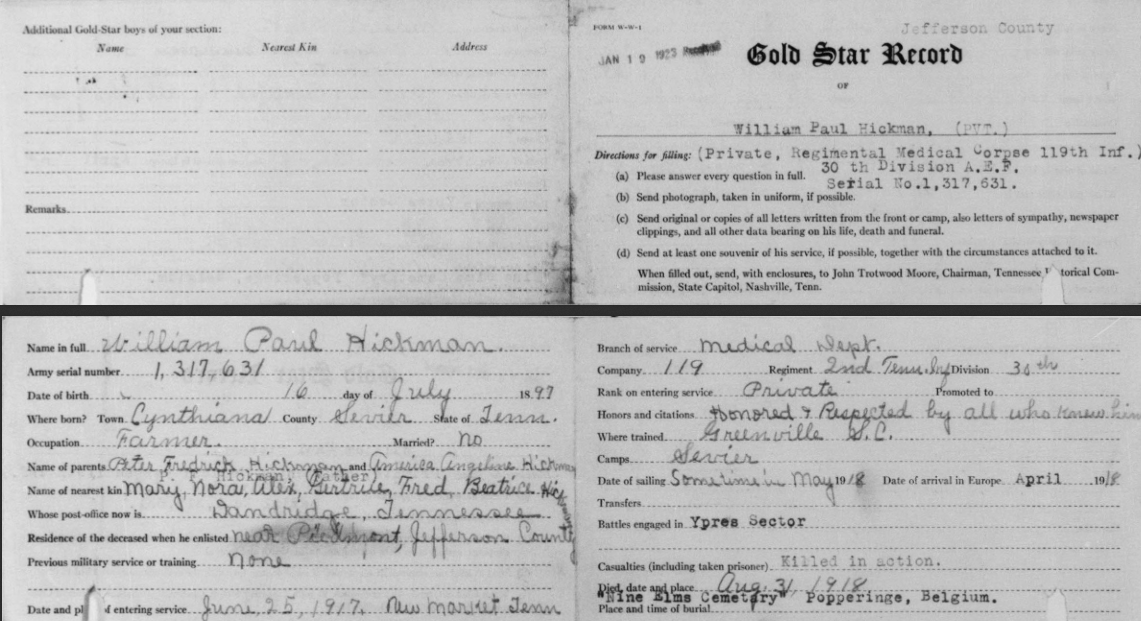 Additional Gold-Star boys of your section:
Name Nearest Kin Address
Remarks
FORM W-W-1
Jefferson County
JAN 19 1923
Gold Star Record
OF
William Paul Hickman, (PVT.)
Directions for filling: (Private, Regimental Medical Corpse 119th Inf.)
30 th Division A.E.F.
(a) Please answer every question in full.
Serial No.1,317,631.
(b) Send photograph, taken in uniform, if possible.
(c) Send original or copies of all letters written from the front or camp, also letters of sympathy, newspaper
clippings, and all other data bearing on his life, death and funeral.
(d) Send at least one souvenir of his service, if possible, together with the circumstances attached to it.
When filled out, send, with enclosures, to John Trotwood Moore, Chairman, Tennessee torical Com-
mission, State Capitol, Nashville, Tenn.
Name in full William Paul Hickman.
Army serial number 1,317,631
Date of birth 16 day of July 1897
Where born? Town Cynthiana County Sevier State of Tenn.
Occupation Farmer. Married? no
Name of parents Peter Fredrick Hickman and America Angeline Hickman
P. F. Hickman, (Father)
Name of nearest kin Mary, Nora, Alex, Gertrude, Fred, Beatrice
Whose post-office now is Dandridge, Tennessee
Residence of the deceased when he enlisted near Piedmont, Jefferson County
Previous military service or training none
Date and pl f entering service June, 25, 1917, New Market Tenn
Branch of service Medical Dept.
Company 119 Regiment 2nd Tenn. Inf Division 30th
Rank on entering service Private Promoted to
Honors and citations Honored & Respected by all who knew him
Where trained Greenville S.C.
Camps Sevier
Date of sailing Sometime in May 1918 Date of arrival in Europe April 1918
Transfers
Battles engaged in Ypres Sector
Casualties (including taken prisoner) Killed in action.
Died, date and place Aug. 31, 1918
"Nine Elms Cemetary" Popperinge, Belgium.
Place and time of burial